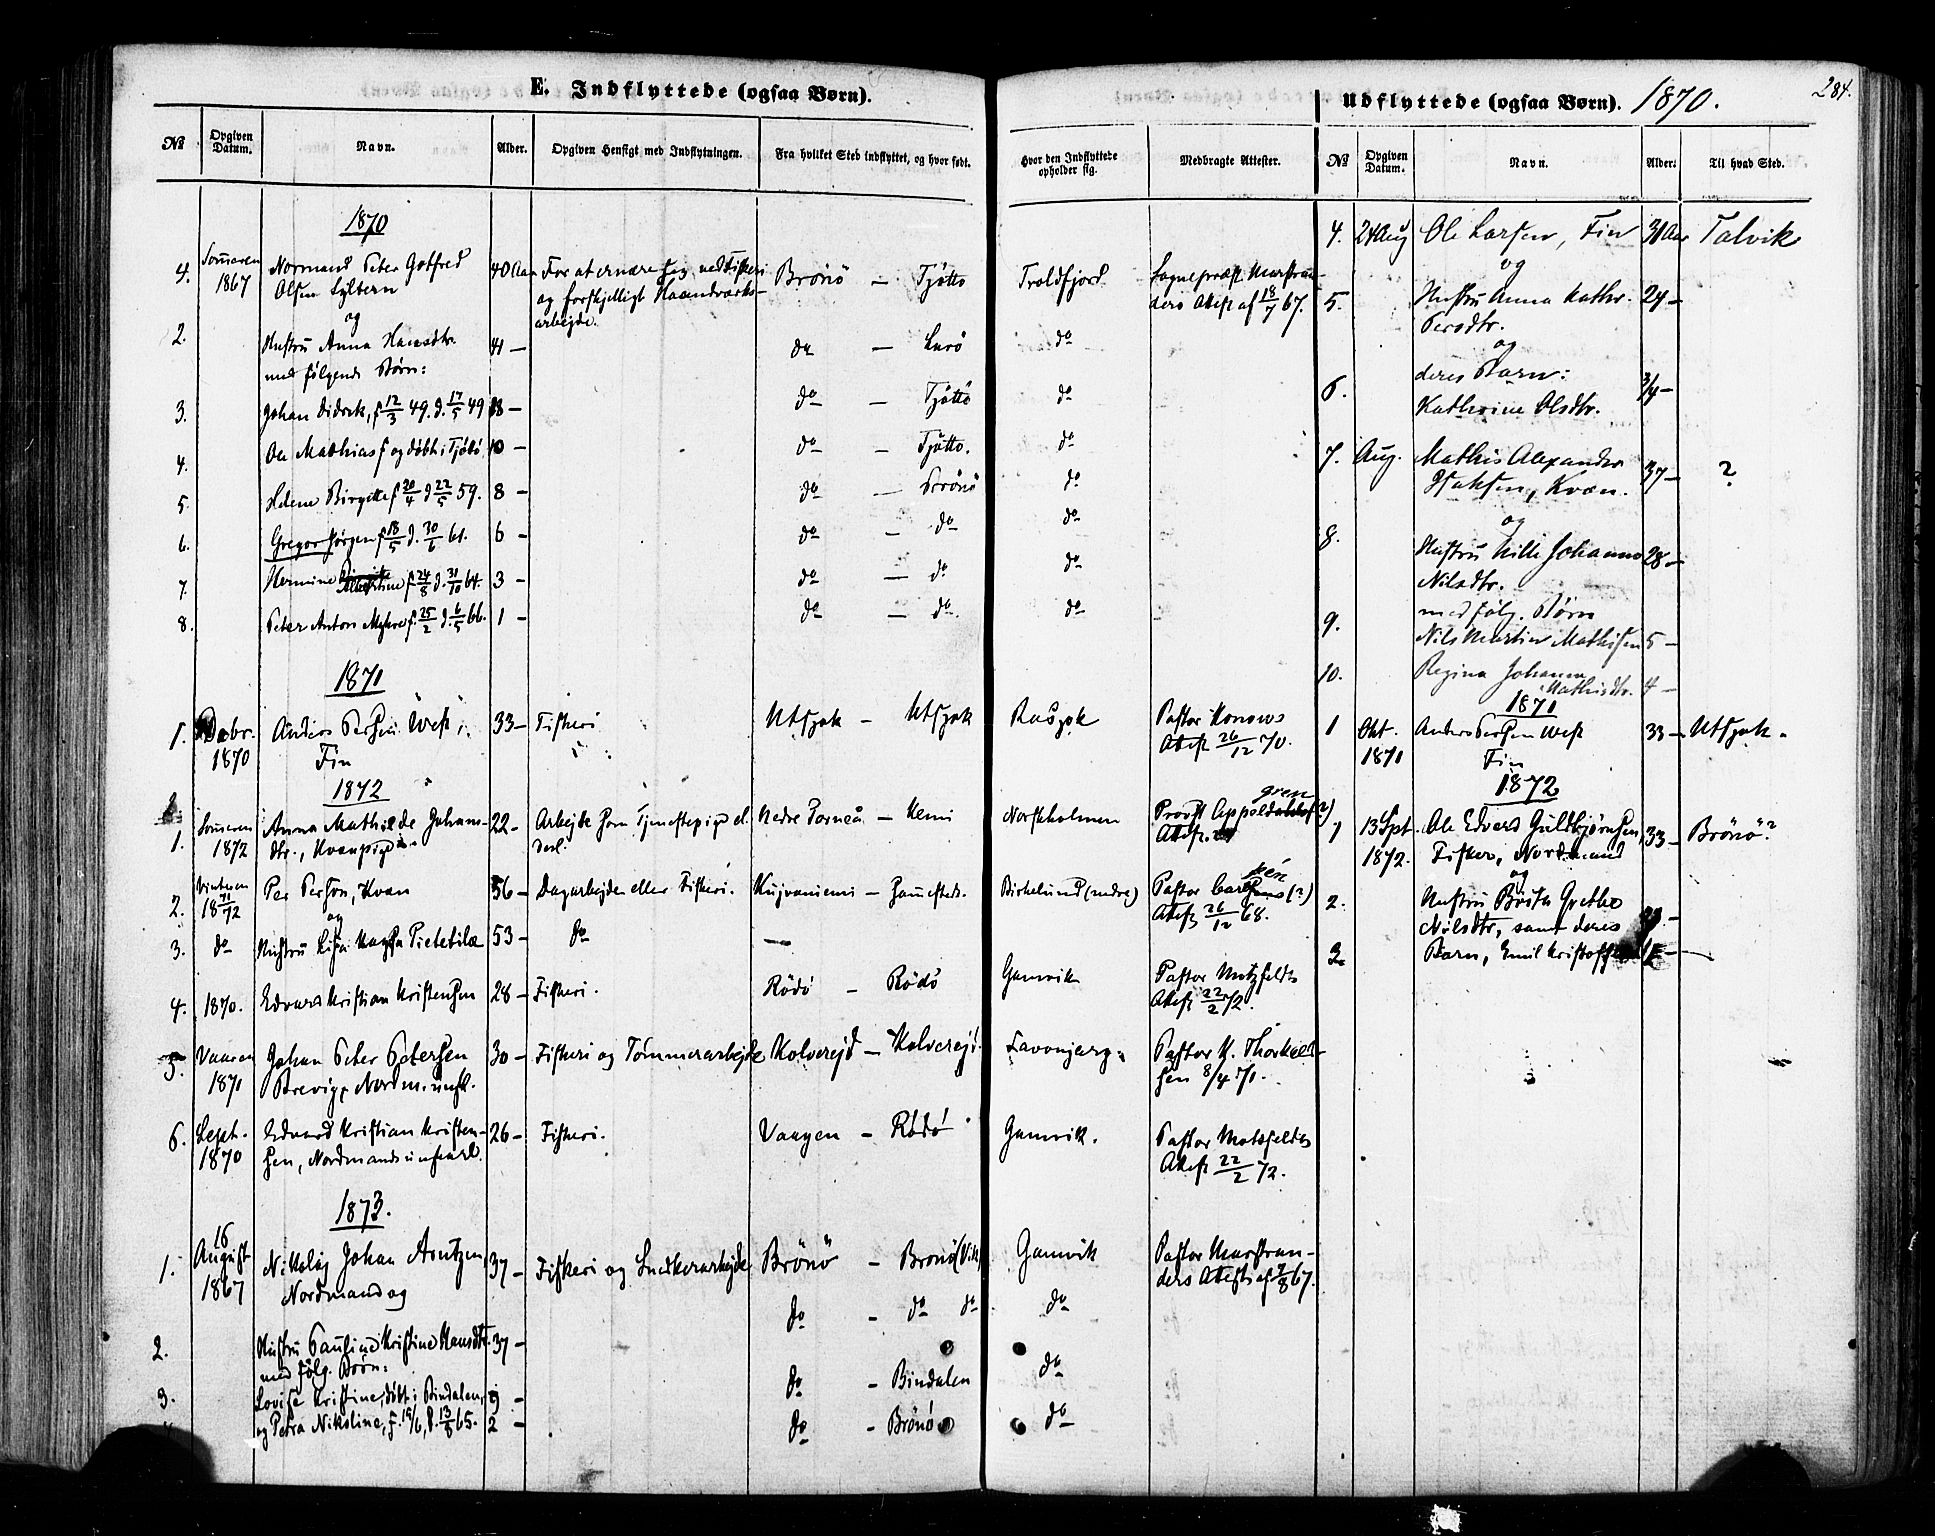 E. Indflyttede (ogsaa Børn).
№ Opgiven Datum. Navn. Alder. Opgiven Hensigt med Indflytningen. Fra hvilket Sted indflyttet, og hvor født. Hvor den Indflyttede opholder sig. Medbragte Attester.
1870
4. Sommeren Normand Peter Gotfred 40 Aar For at ernære sig ved Fiskeri Brönö — Tjötto Troldfjord Sognepræst Marstran-
1867 Olsen og forskjelligt Haandværks- ders Attest af 18/7 67.
og arbejde.
2. Hustru Anna Hansdtr. 41 — do — Lurö do
med følgende Børn:
3. Johan Didrik, f. 12/3 49. d. 17/5 49 18 — do — Tjöttö do
4. Ole Mathias f og døbt i Tjötö. 10 — do — Tjötto. do
5. Helene Birgitte f 20/4 d 22/5 59. 8 — do — Brönö do
6. Gregor Jörgen f 18/5 d. 30/6 61. 6 — do — do do
7. Hermine Albertine f. 24/8 d. 31/10 64. 3 — do — do do
8. Peter Anton f. 25/2 d. 6/5 66. 1 — do — do do
1871
1. Debr. Anders Persen West, 33 — Fiskeri Utsjok — Utsjok Pastor Konows
1870 Fin Attest 26/12 70.
1872
1. Sommeren Anna Mathilde Johans- 22 — Arbejde som Tjenestepige el. Nedre Torneå — Kemi Norskholmen Provst
1872 dtr., Kvænpige desl. Attest.
2. Vinteren Per Person, Kvæn 56 — Dagarbejde eller Fiskeri. Kujvaniemi — Sammesteds. Birkelund (nedre) Pastor (?)
18 71/72 og Attest 26/12 68.
3. do Hustru Lisa Kajsa Pietetilæ 53 — do —
4. 1870. Edvard Kristian Kristensen 28 — Fiskeri. Rödö — Rödö Gamvik Pastor Motzfeldts
Attest 22/2 72.
5. Vaaren Johan Peter Petersen 30 — Fiskeri og Tömmerarbejde Kolverejd — Kolverejd Lavonjarg. Pastor H. Thorkild-
1871 Brevig, Nordm. sen 8/4 71.
6. Sept. Edvard Kristian Kristen- 26 — Fiskeri. Vaagen — Rödö Gamvik. Pastor Motsfeldts
1870 sen, Nordmand Attest 22/2 72.
1873.
16
1. August Nikolaj Johan Arntzen, 37 — Fiskeri og Snedkerarbejde Brönö — Brönö (Vik) Gamvik Pastor Marstran-
1867 Nordmand og ders Attest af 7/8 67.
do — do do do
2. Hustru Pauline Kristine Hansdtr. 37 —
med følg. Børn:
do — Bindalen do
3. Lovise Kristine, døbt i Bindalen, 9 —
og Petra Nikoline, f. 19/6, d. 13/8 65. 2 — do — Brönö do
Udflyttede (ogsaa Børn). 1870.
284.
№ Opgiven Datum. Navn. Alder. Til hvad Sted.
4. 24 Aug Ole Larsen, Fin 31 Aar Talvik
og
5. Hustru Anna Kathr. 24 —
Persdtr.
og
6. deres Barn: 3/4 —
Kathrine Olsdtr.
7. Aug. Mathis Alexander 37 — ?
Isaksen, Kvæn.
og
8. Hustru Johanna 28 —
Nilsdtr.
med følg. Børn
9. Nils Martin Mathisen 5 —
10. Regina Johanna
Mathisdtr. 4 —
1871
1 Okt. Anders Persen West 33 — Utsjok.
1871 Fin
1872
1 13 Spt. Ole Edvard Guldbjørnsen, 33 — Brönö?
1872. Fisker, Nordmand
og
2. Hustru Brita Grethe
Nilsdtr, samt deres
3. Barn, Emil